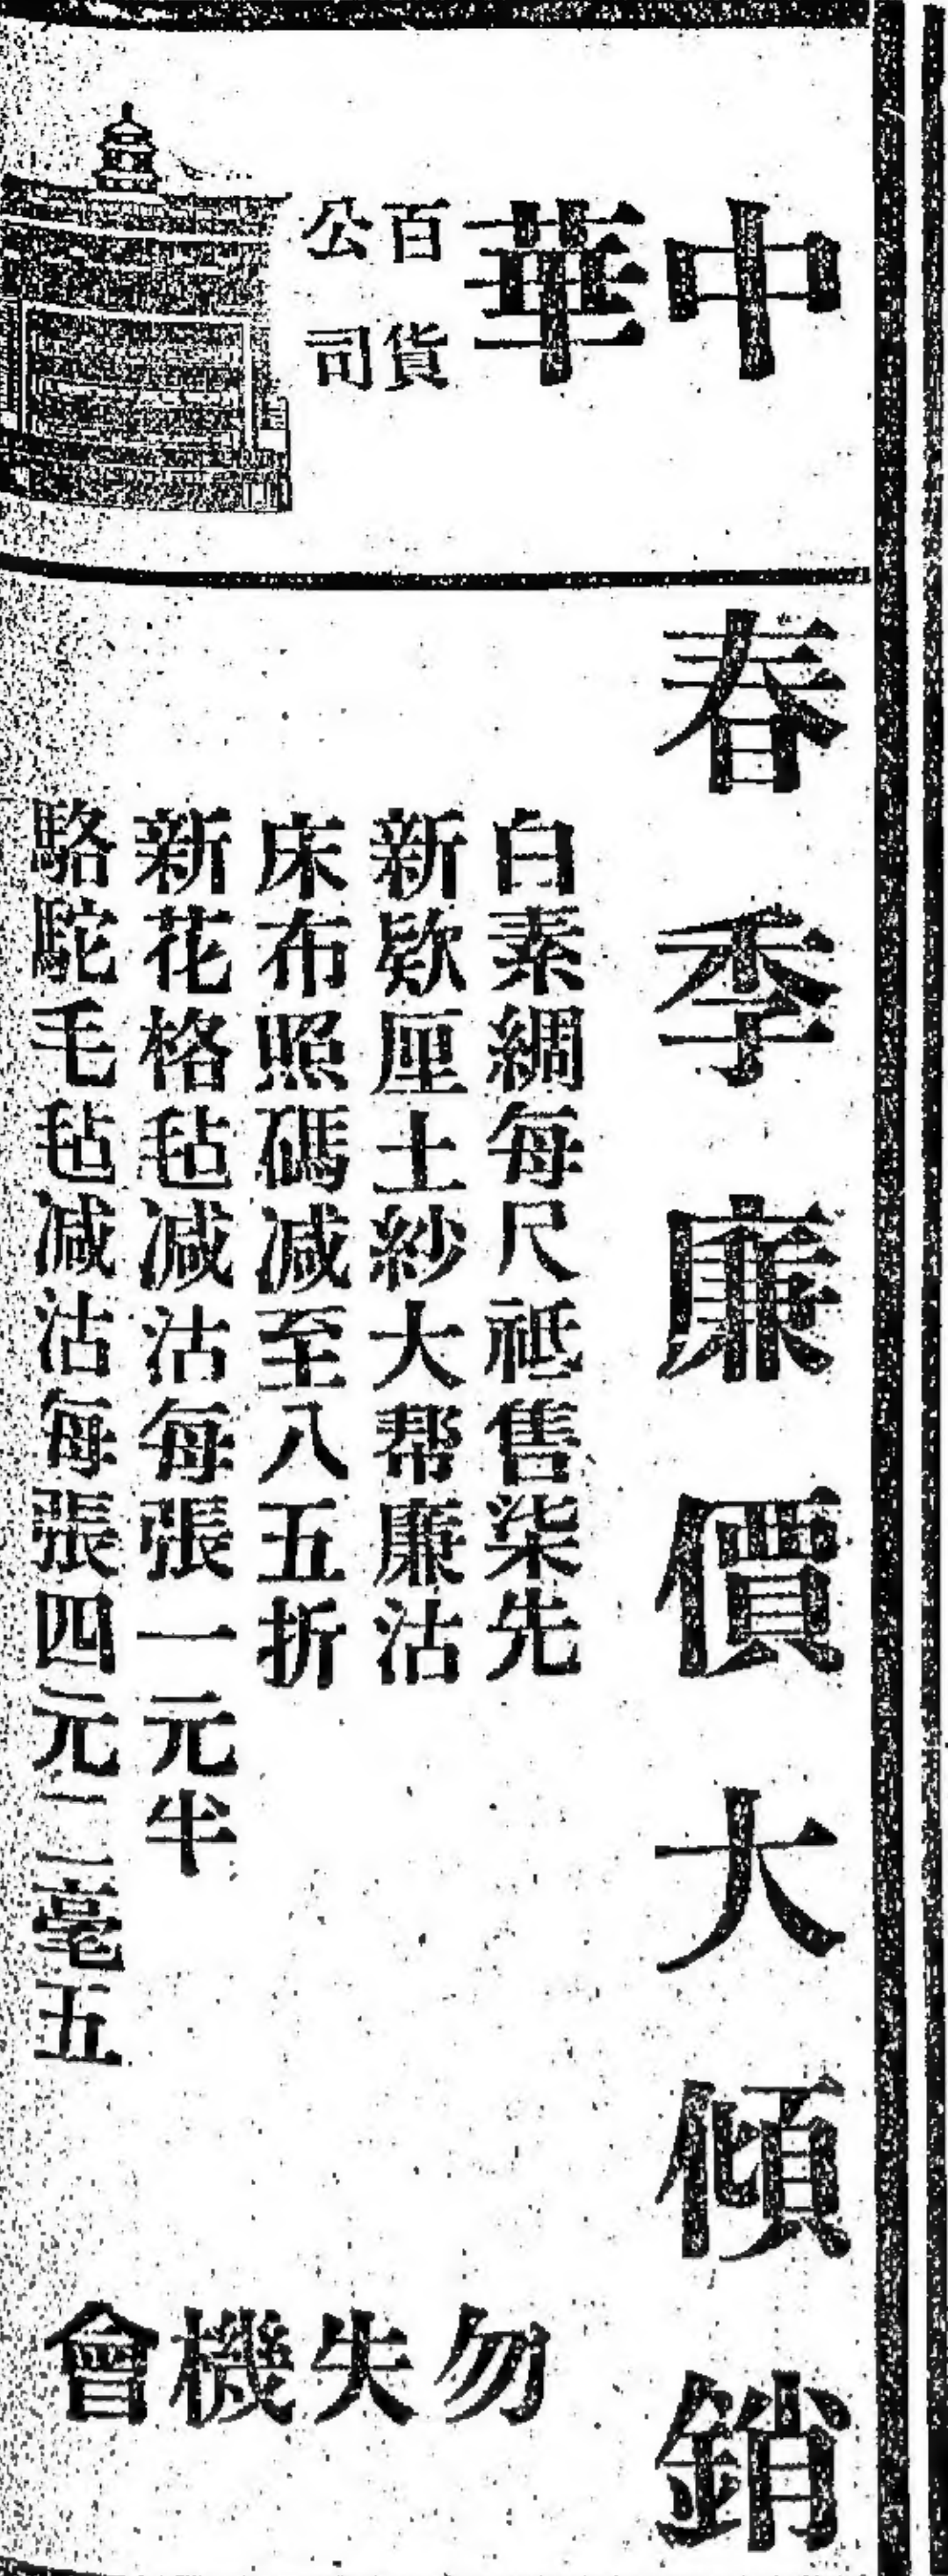 中華
百貨
公司
春季廉價大傾銷
白素綢每尺祗售柒先
新欵厘士紗大帮廉沽
床布照碼減至八五折
新花格毡減沽每張一元半
駱駝毛毡減沽每張四元二毫五
勿失機會